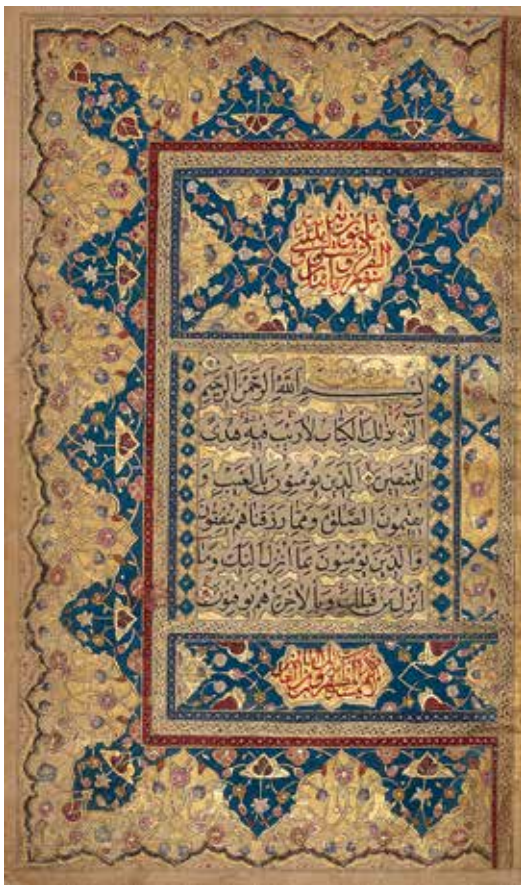 سورة البقرة
بسم الله الرحمن الرحيم
الم ذلك الكتاب لاريب فيه هدى
للمتقين الذين يؤمنون بالغيب و
يقيمون الصلوة ومما رزقناهم ينفقون
والذين يؤمنون بما انزل اليك وما
انزل من قبلك وبالاخرة هم يوقنون